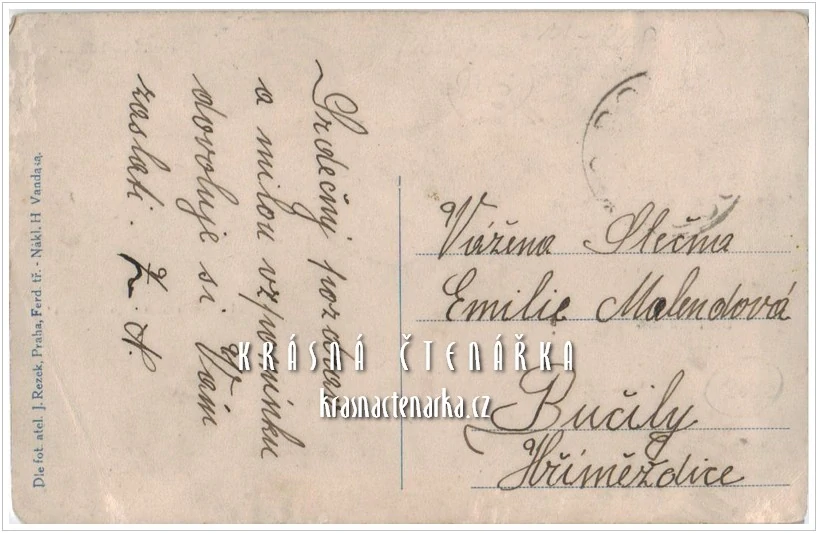 Srdečný pozdrav
a milou vzpomínku
dovoluje si Vám
zaslati.
Vážena Slečna
Emilie Malendová
Bučily
Hříměždice
Dle fot. atel. J. Rezek, Praha, Ferd. tř. - Nákl. H Vanda sa.
KRÁSNÁ ČTENÁŘKA
krasnactenarka.cz